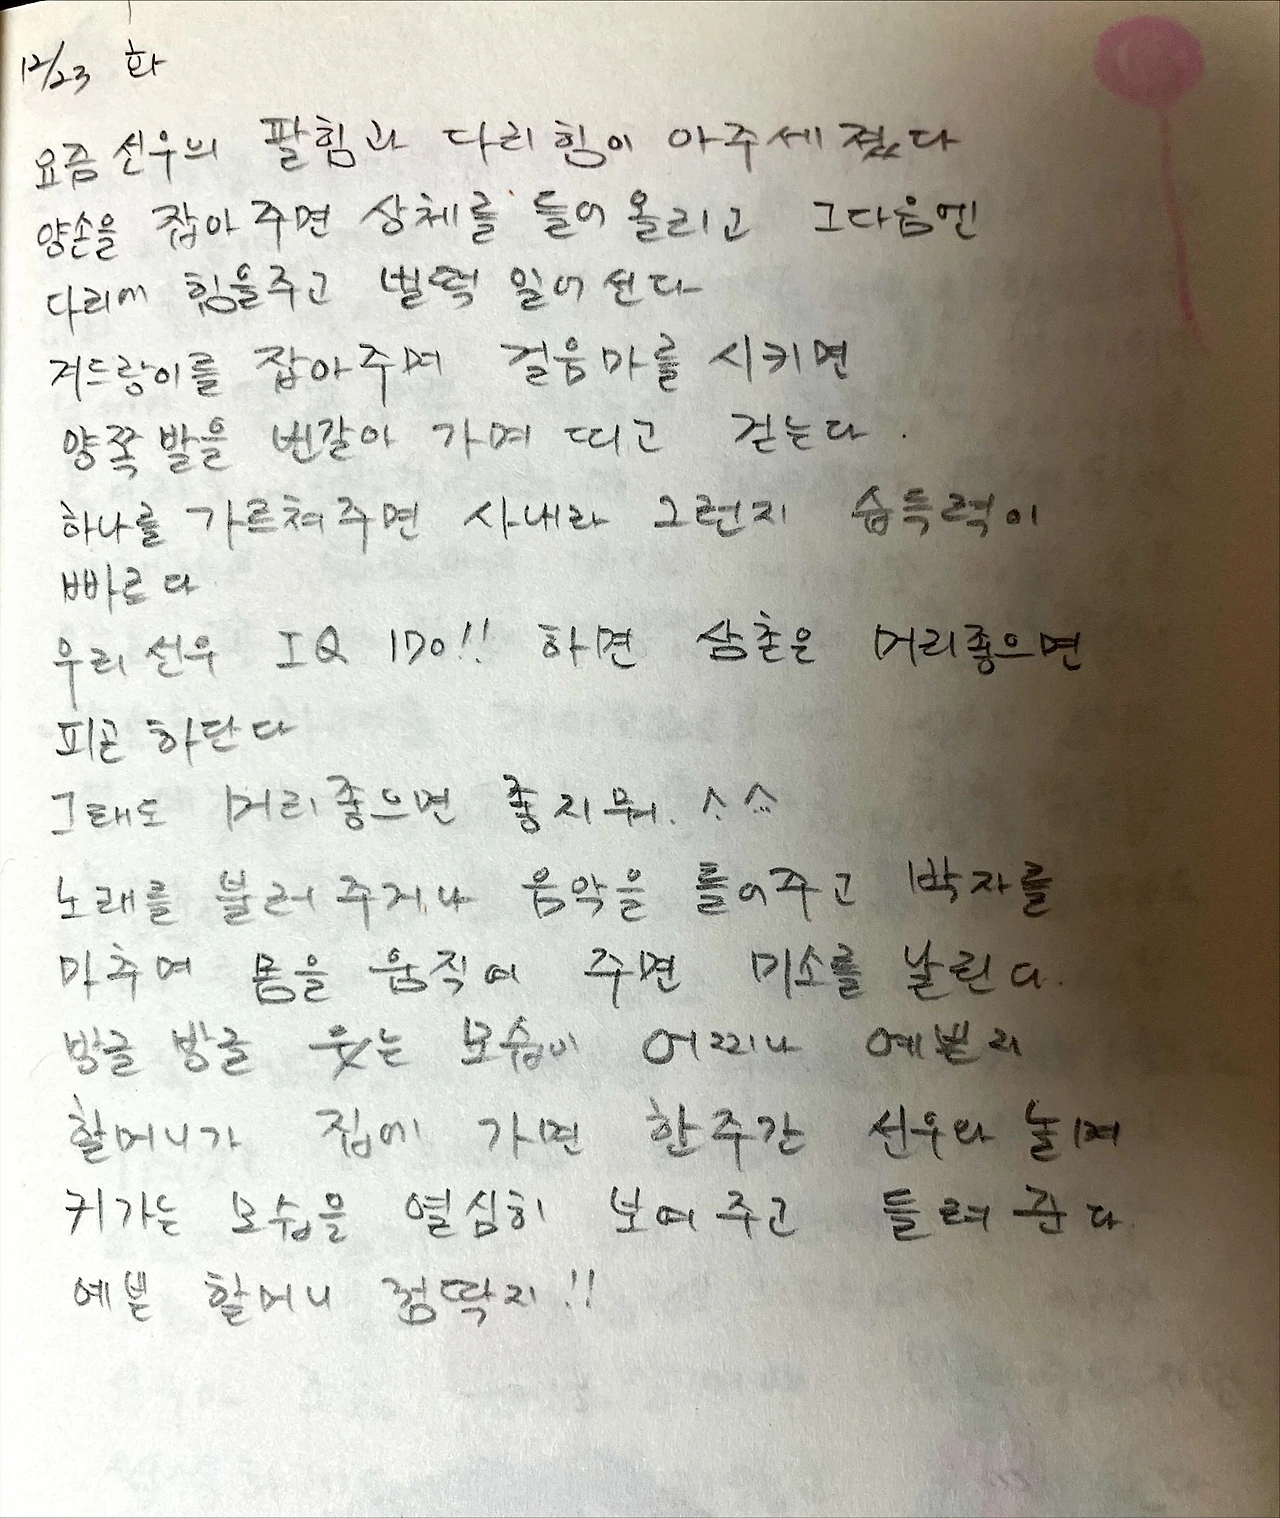 12/23 화
요즘 선우의 팔힘과 다리힘이 아주세졌다
양손을 잡아주면 상체를 들어올리고 그다음엔
다리에 힘을주고 벌떡 일어선다
겨드랑이를 잡아주며 걸음마를 시키면
양쪽발을 번갈아 가며 띠고 걷는다.
하나를 가르쳐주면 사내라 그런지 습득력이
빠르다
우리선우 IQ 170!! 하면 삼촌은 머리좋으면
피곤하단다
그래도 머리좋으면 좋지뭐. ^^
노래를 불러주거나 음악을 틀어주고 박자를
마추며 몸을 움직여 주면 미소를 날린다.
방글방글 웃는 모습이 어찌나 예쁜지
할머니가 집에 가면 한주간 선우와 놀며
커가는 모습을 열심히 보여주고 들려준다.
예쁜 할머니 껌딱지!!